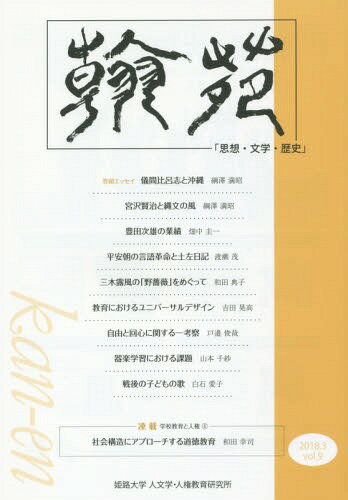 翰苑
「思想・文学・歴史」
巻頭エッセイ 儀間比呂志と沖縄 綱澤 満昭
宮沢賢治と縄文の風 綱澤 満昭
豊田次雄の業績 畑中 圭一
平安朝の言語革命と土左日記 渡瀬 茂
三木露風の「野薔薇」をめぐって 和田 典子
教育におけるユニバーサルデザイン 吉田 晃高
自由と回心に関する一考察 戸邉 俊哉
器楽学習における課題 山本 千紗
戦後の子どもの歌 白石 愛子
連載 学校教育と人権④
社会構造にアプローチする道徳教育 和田 幸司
kan-en
2018.3
vol.9
姫路大学 人文学・人権教育研究所